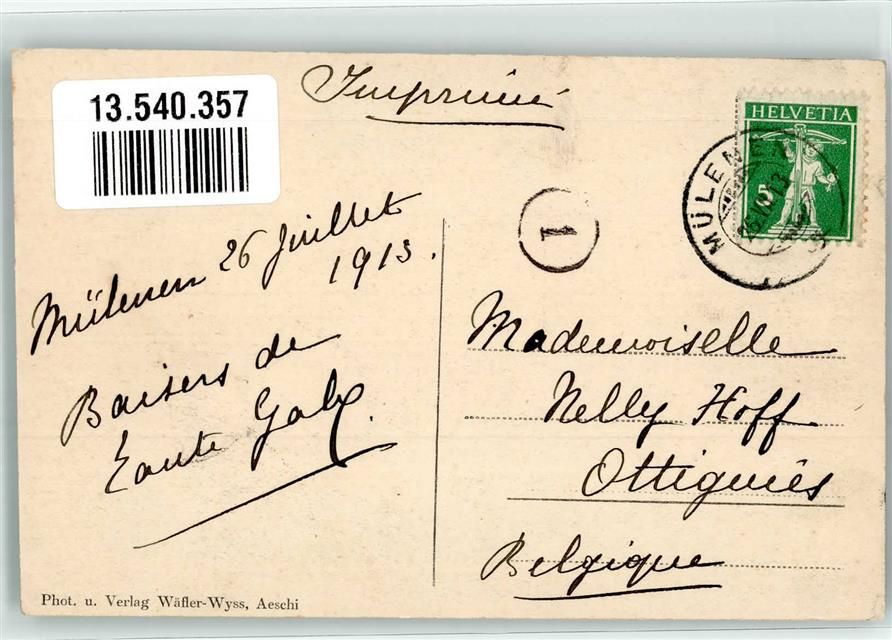 13.540.357
Imprimé
HELVETIA
5
MÜLENEN
1
Mülenen 26 Juillet
1913.
Baisers de
Tante Gaby.
Mademoiselle
Nelly Hoff
Ottignies
Belgique
Phot. u. Verlag Wäfler-Wyss, Aeschi